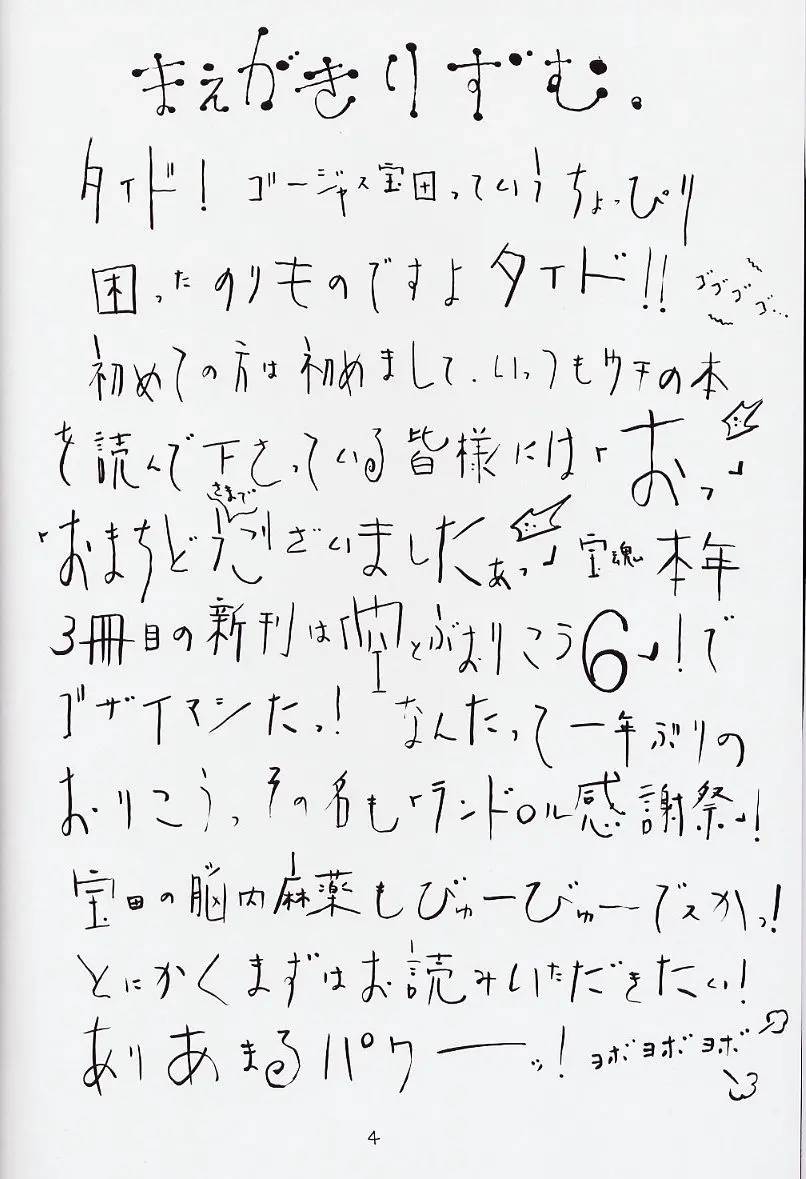 まえがきりずむ。
タイド！ ゴージャス宝田っていうちょっぴり
困ったのりものですよタイド!! ゴゴゴゴ…
初めての方は初めまして、いつもウチの本
を読んで下さっている皆様には「おっ」
さまで
「おまちどうございましたあっ」宝魂 本年
3冊目の新刊は「空とぶおりこう6」！で
ゴザイマシたっ！ なんたって一年ぶりの
おりこうっ、その名も「ランドロル感謝祭」！
宝田の脳内麻薬もびゅーびゅーでスかっ！
とにかくまずはお読みいただきたい！
ありあまるパワーーッ！ ヨボヨボヨボ
4